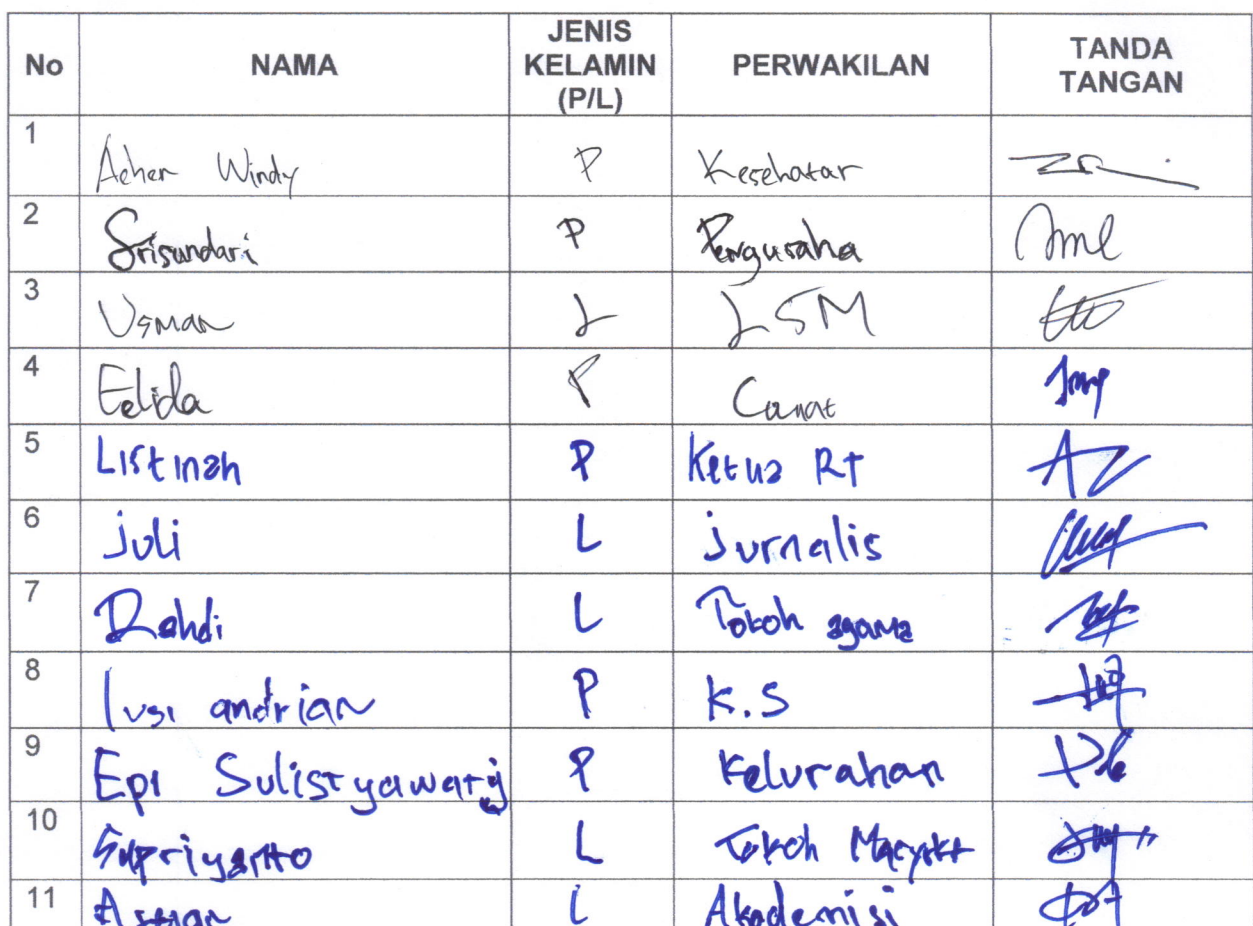 No NAMA JENIS KELAMIN (P/L) PERWAKILAN TANDA TANGAN
1 Aehen Windy P Kesehatan
2 Srisundari P Pengusaha
3 Usman L LSM
4 Eelida P Camat
5 Listinah P Ketua RT
6 Juli L Jurnalis
7 Rahdi L Tokoh agama
8 Iusi andrian P K.S
9 Epi Sulistyawaty P Kelurahan
10 Supriyanto L Tokoh
11 L Akademisi